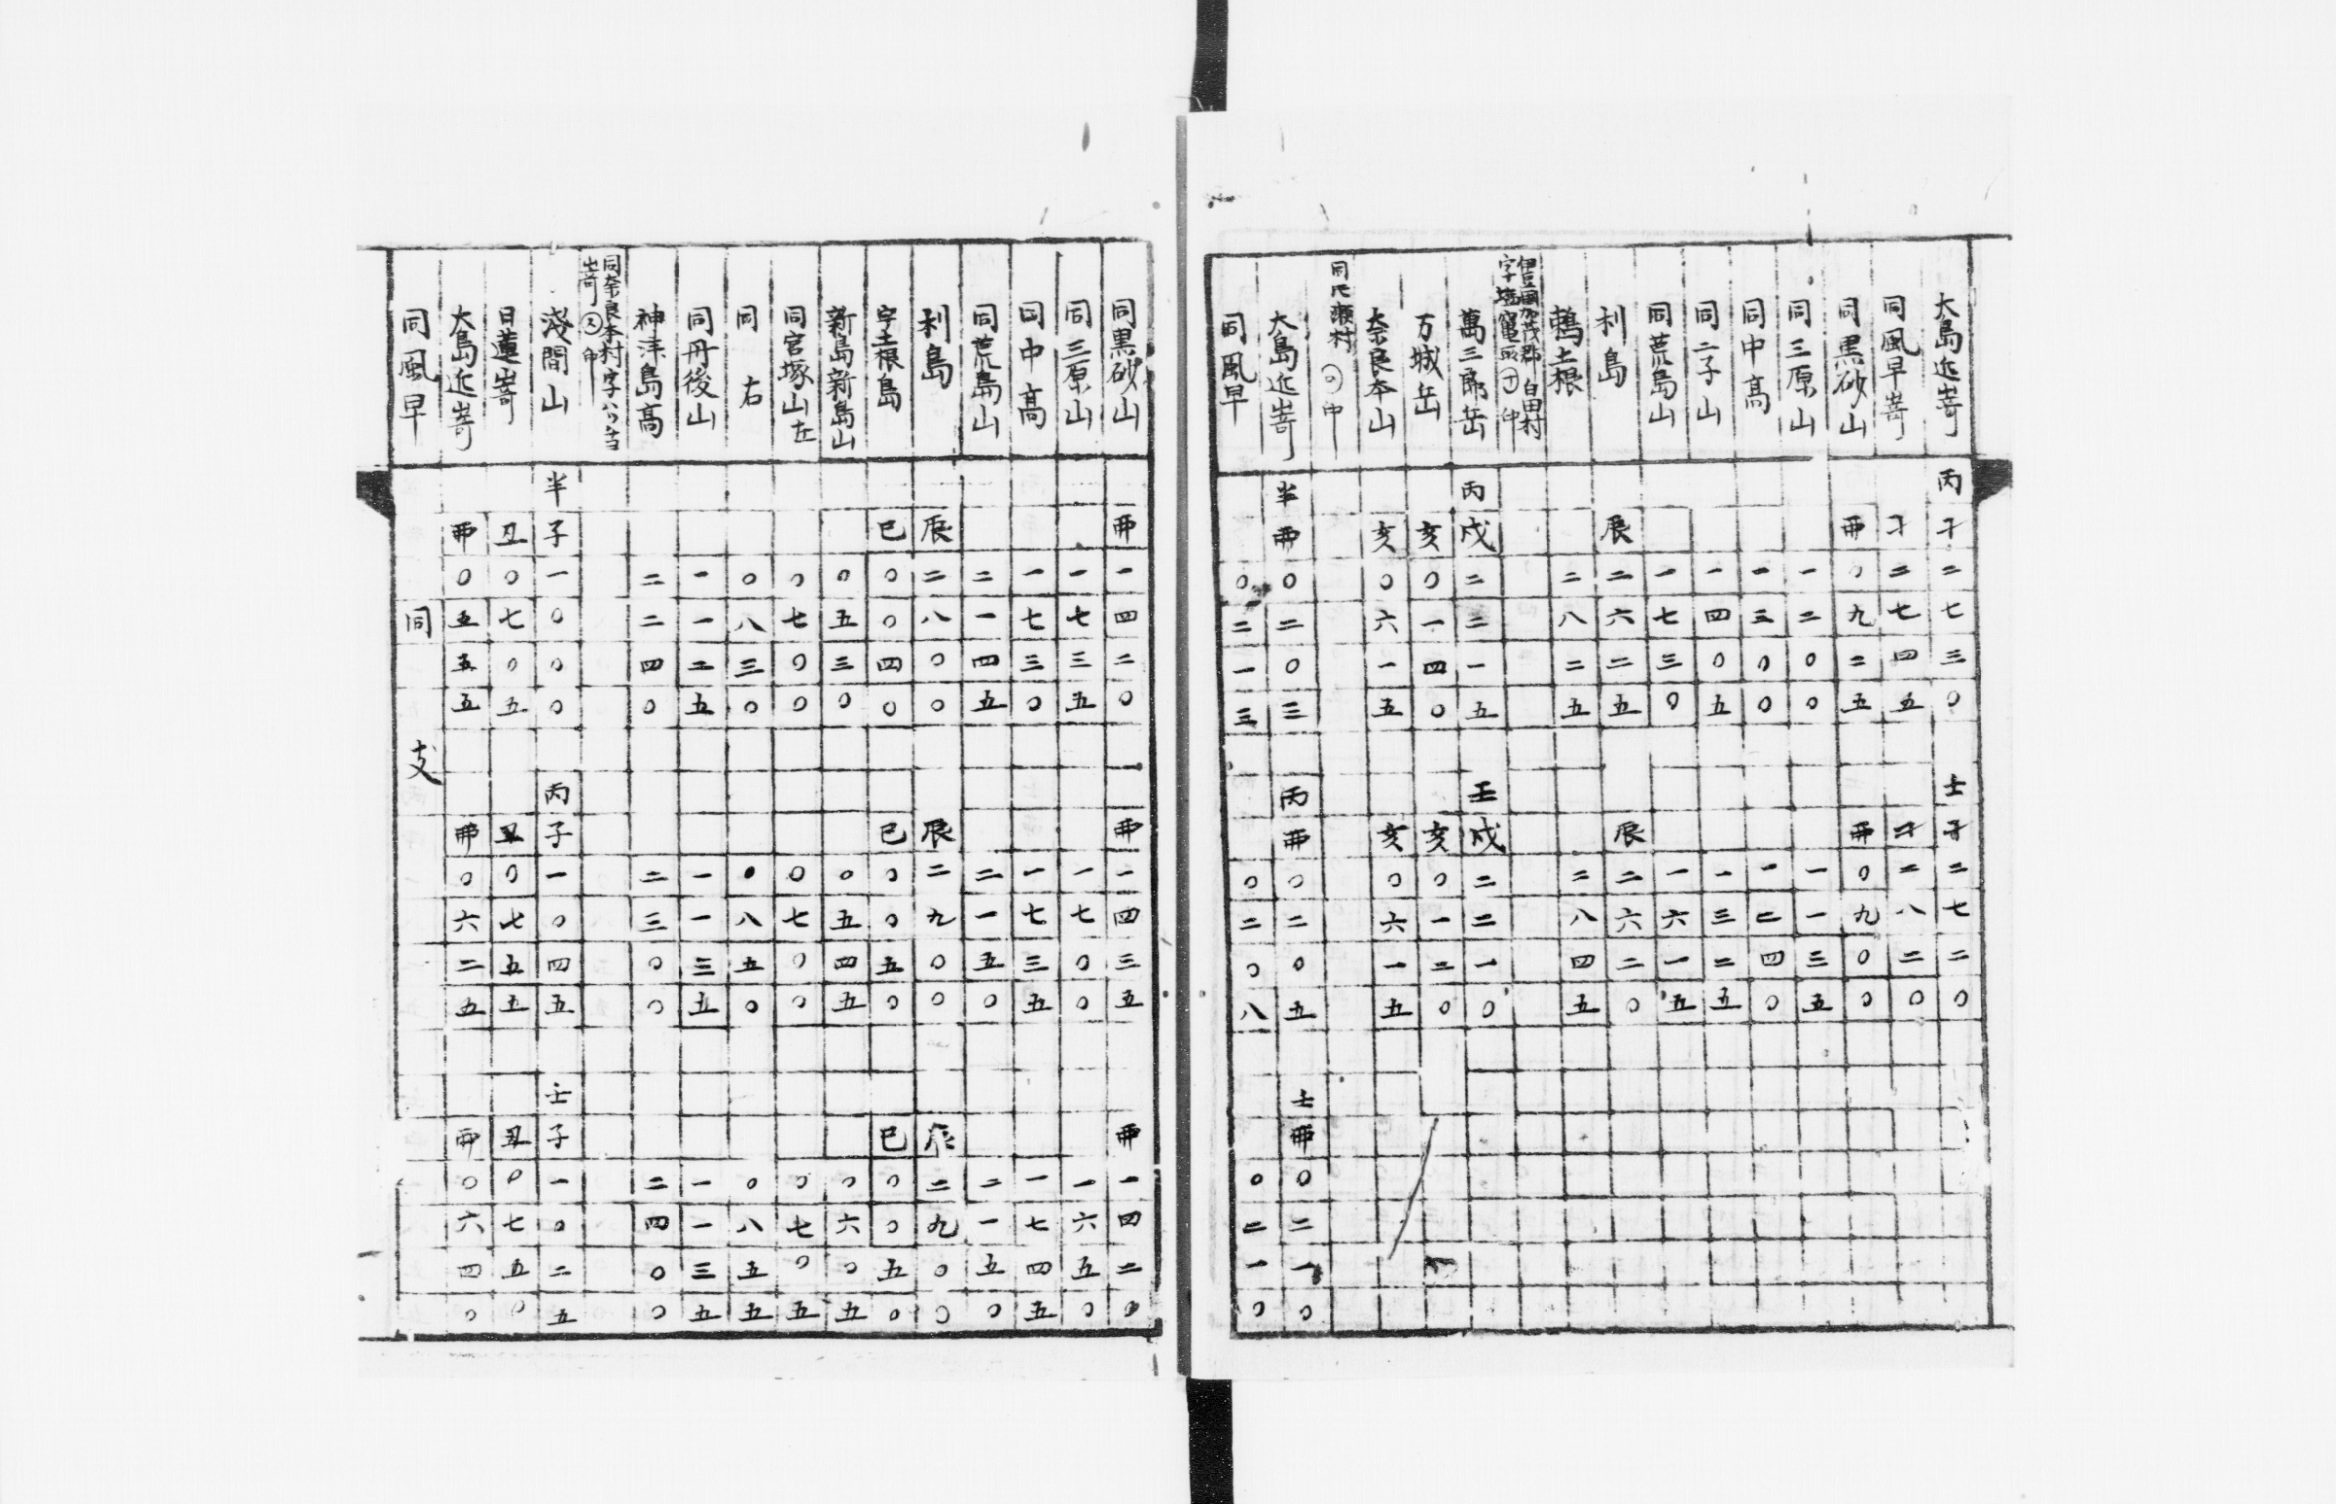 大島近嵜 丙子二七三〇 壬子二七二〇
同風早嵜 子二七四五 子二八二〇
同黒砂山 酉〇九二五 酉〇九〇〇
同三原山 一二〇〇 一一三五
同中髙 一三〇〇 一二四〇
同二子山 一四〇五 一三二五
同荒島山 一七三〇 一六一五
利島 辰二六二五 辰二六二〇
鵜土根 二八二五 二八四五
伊豆國加茂郡白田村
字 竈 印
萬三郎岳 丙戌二三一五 壬戌二二一〇
万城岳 亥〇一四〇 亥〇一二〇
奈良本山 亥〇六一五 亥〇六一五
同 瀬村 印
大島近嵜 半酉〇二〇三 丙酉〇二〇五 壬酉〇二一〇
同風早 〇二一三 〇二〇八 〇二一〇
同黒砂山 酉一四二〇 酉一四三五 酉一四二〇
同三原山 一七三五 一七〇〇 一六五〇
同中髙 一七三〇 一七三五 一七四五
同荒島山 二一四五 二一五〇 二一五〇
利島 辰二八〇〇 辰二九〇〇 辰二九〇〇
宇土根島 巳〇〇四〇 巳〇〇五〇 巳〇〇五〇
新島新島山 〇五三〇 〇五四五 〇六〇五
同宮塚山左 〇七〇〇 〇七〇〇 〇七〇五
同右 〇八三〇 〇八五〇 〇八五五
同丹後山 一一二五 一一三五 一一三五
神津島髙 二二四〇 二三〇〇 二四〇〇
同奈良本村字
嵜 又 印
淺間山 半子一〇〇〇 丙子一〇四五 壬子一〇二五
日蓮嵜 丑〇七〇五 丑〇七五五 丑〇七五〇
大島近嵜 酉〇五五五 酉〇六二五 酉〇六四〇
同風早 同 支